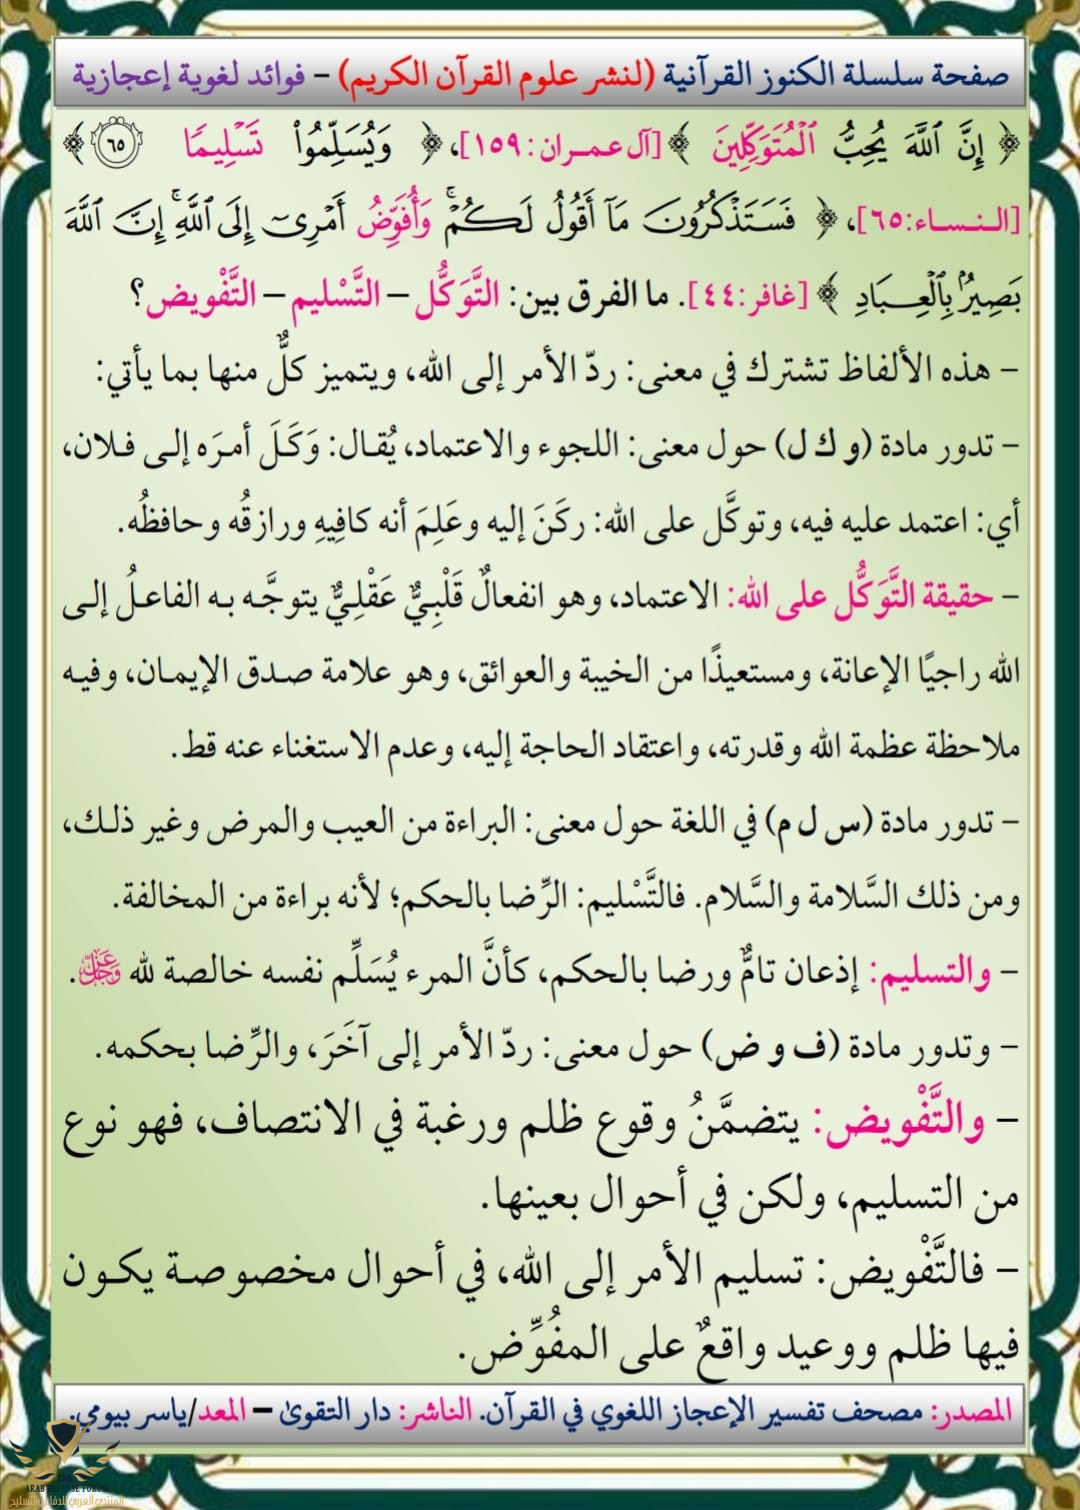 صفحة سلسلة الكنوز القرآنية (لنشر علوم القرآن الكريم) – فوائد لغوية إعجازية
﴿ إِنَّ ٱللَّهَ يُحِبُّ ٱلْمُتَوَكِّلِينَ ﴾ [آل عمران: ١٥٩]، ﴿ وَيُسَلِّمُوا۟ تَسْلِيمًا ٦٥ ﴾
[النساء: ٦٥]، ﴿ فَسَتَذْكُرُونَ مَآ أَقُولُ لَكُمْ ۚ وَأُفَوِّضُ أَمْرِىٓ إِلَى ٱللَّهِ ۚ إِنَّ ٱللَّهَ
بَصِيرٌۢ بِٱلْعِبَادِ ﴾ [غافر: ٤٤]. ما الفرق بين: التَّوَكُّل – التَّسْليم – التَّفْويض؟
– هذه الألفاظ تشترك في معنى: ردّ الأمر إلى الله، ويتميز كلٌّ منها بما يأتي:
– تدور مادة (و ك ل) حول معنى: اللجوء والاعتماد، يُقال: وَكَلَ أمرَه إلى فلان،
أي: اعتمد عليه فيه، وتوكَّل على الله: ركَنَ إليه وعَلِمَ أنه كافِيهِ ورازقُه وحافظُه.
– حقيقة التَّوَكُّل على الله: الاعتماد، وهو انفعالٌ قَلْبِيٌّ عَقْلِيٌّ يتوجَّه به الفاعلُ إلى
الله راجيًا الإعانة، ومستعيذًا من الخيبة والعوائق، وهو علامة صدق الإيمان، وفيه
ملاحظة عظمة الله وقدرته، واعتقاد الحاجة إليه، وعدم الاستغناء عنه قط.
– تدور مادة (س ل م) في اللغة حول معنى: البراءة من العيب والمرض وغير ذلك،
ومن ذلك السَّلامة والسَّلام. فالتَّسْليم: الرِّضا بالحكم؛ لأنه براءة من المخالفة.
– والتسليم: إذعان تامٌّ ورضا بالحكم، كأنَّ المرء يُسَلِّم نفسه خالصة لله عَزَّ وَجَلَّ.
– وتدور مادة (ف و ض) حول معنى: ردّ الأمر إلى آخَرَ، والرِّضا بحكمه.
– والتَّفْويض: يتضمَّنُ وقوع ظلم ورغبة في الانتصاف، فهو نوع
من التسليم، ولكن في أحوال بعينها.
– فالتَّفْويض: تسليم الأمر إلى الله، في أحوال مخصوصة يكون
فيها ظلم ووعيد واقعٌ على المفُوِّض.
المصدر: مصحف تفسير الإعجاز اللغوي في القرآن. الناشر: دار التقوىٰ – المعد/ياسر بيومي.
ARAB DEFENSE FORUM
المنتدى العربي للدفاع والتسليح